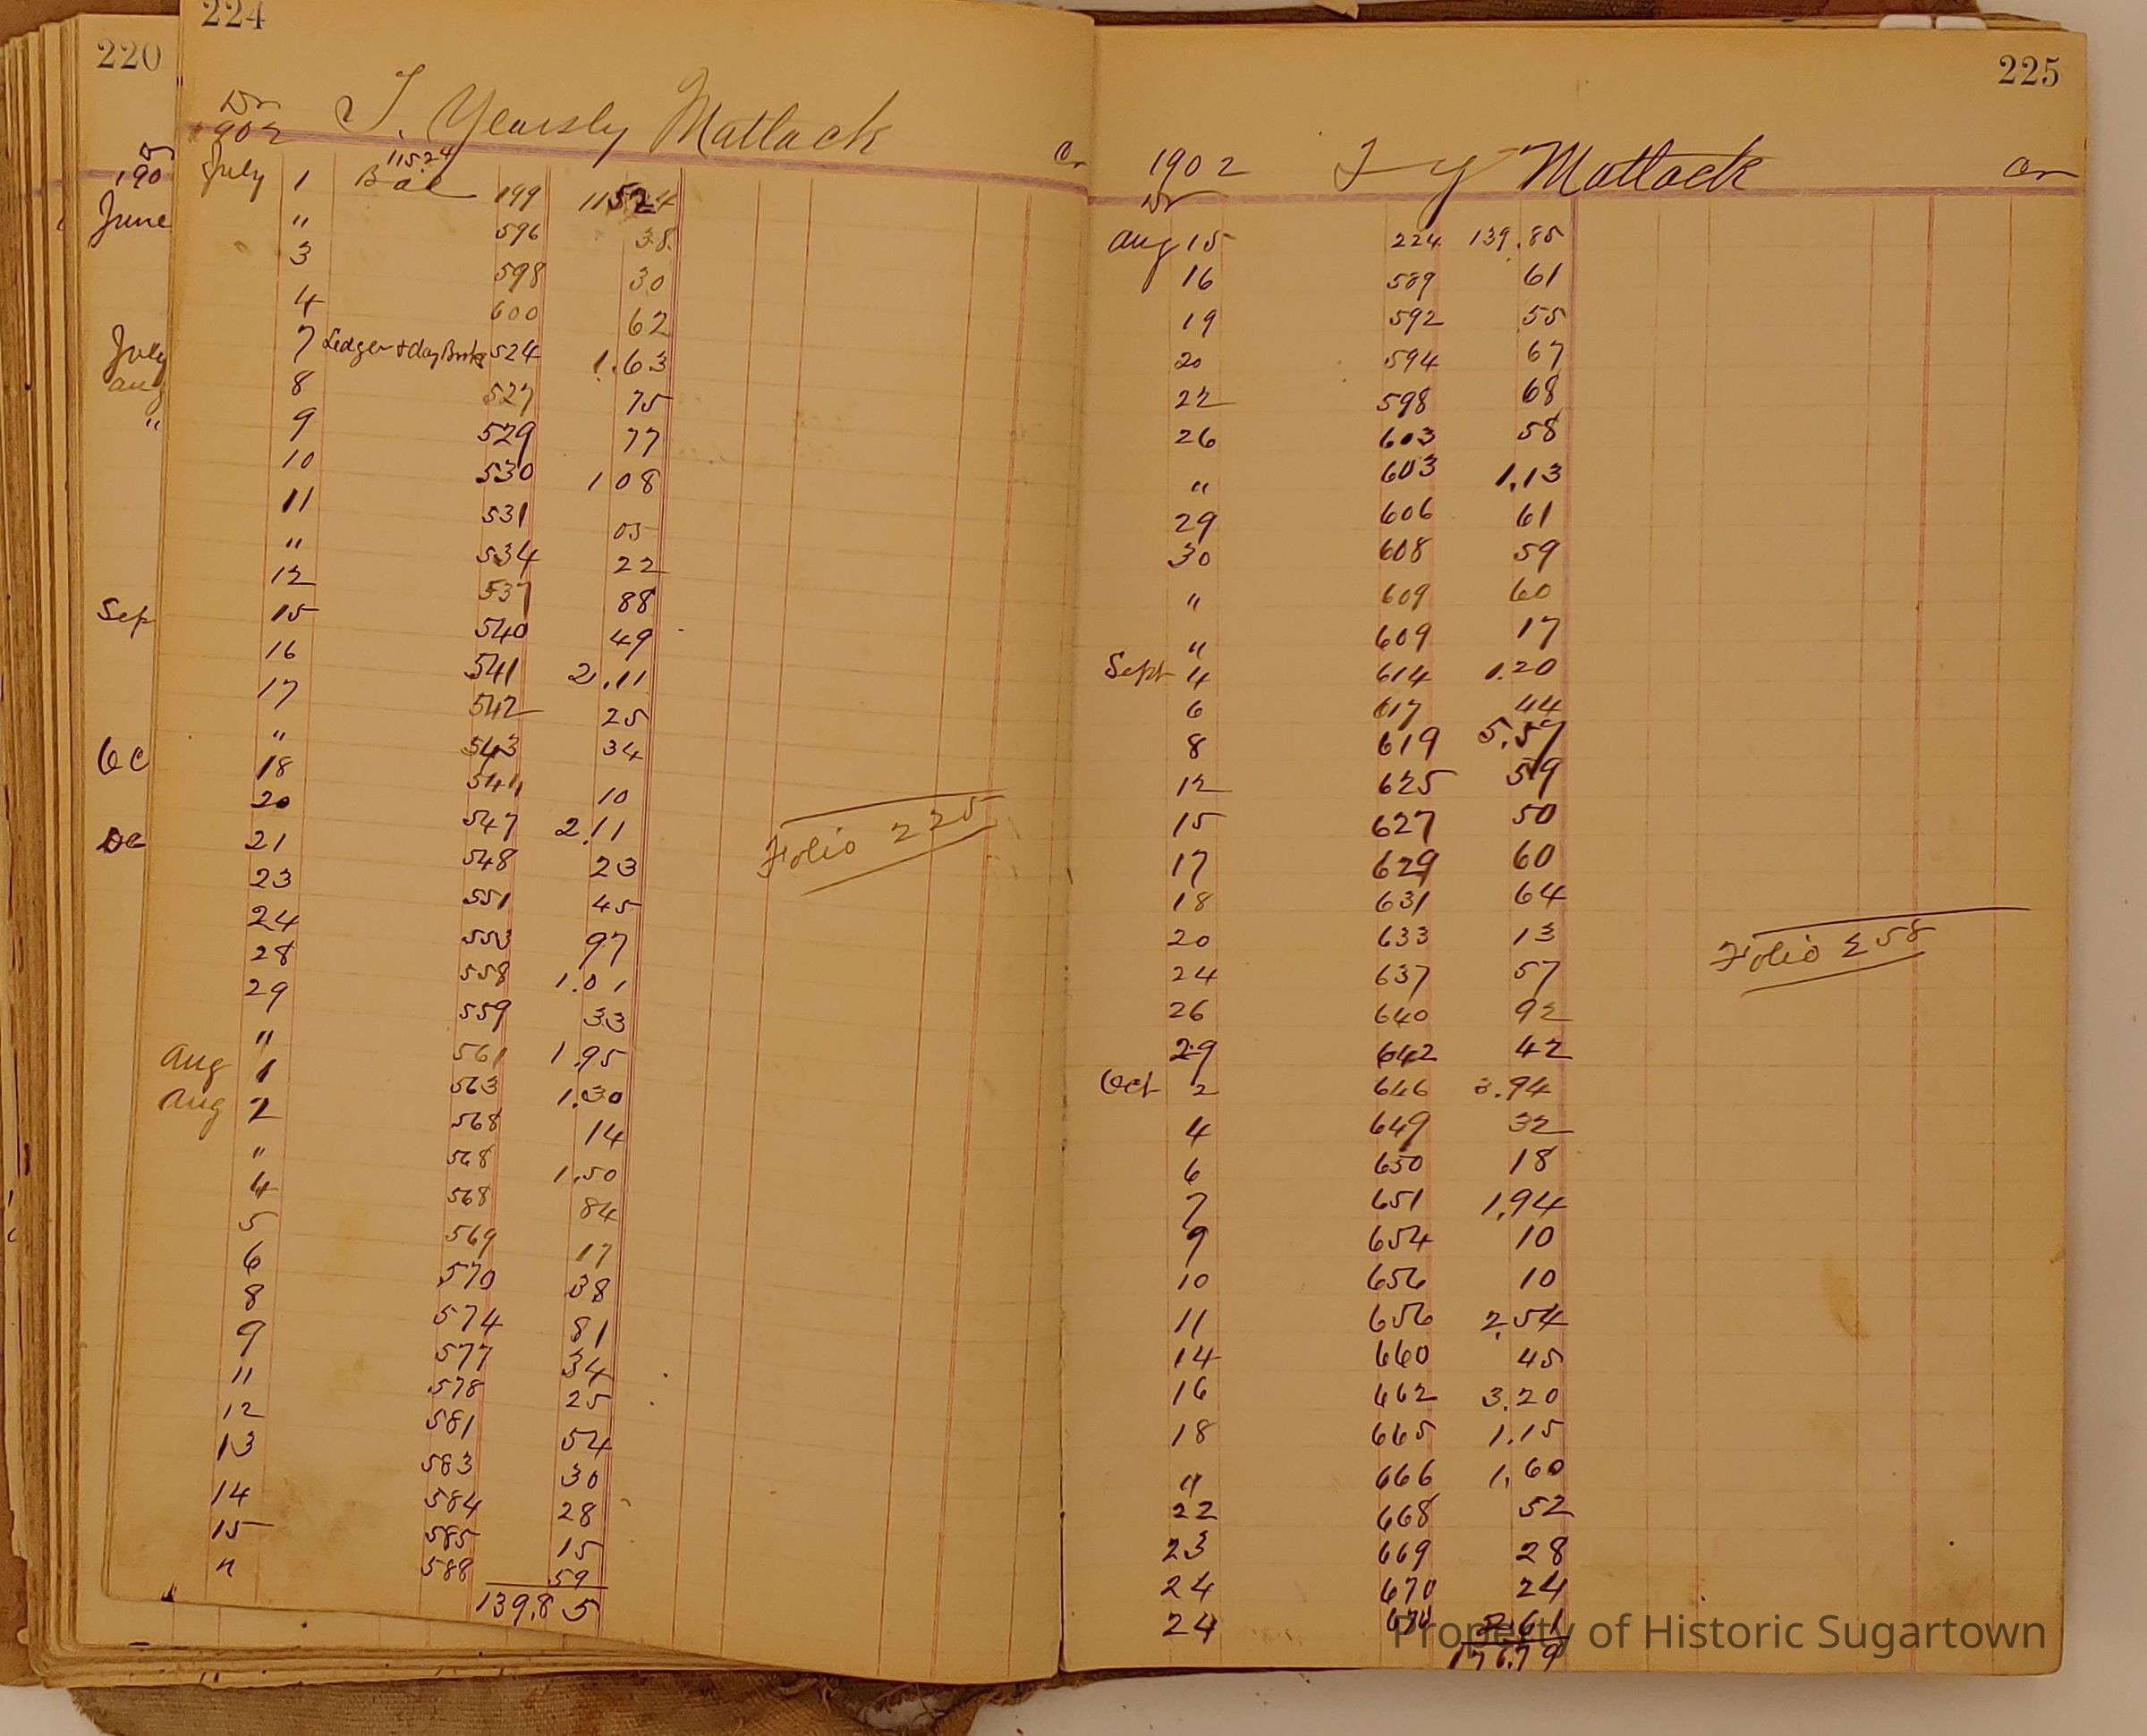 220
190
June
July
aug
"
Sep
Oc
De
224
Dr
1902 T. Yearsly Matlack Cr
11524
July 1 Bal 199 11524
" 596 38
3 598 30
4 600 62
7 Ledger + day Book 524 1.63
8 527 75
9 529 77
10 530 108
11 531 05
" 534 22
12 537 88
15 540 49
16 541 2.11
17 542 25
" 543 34
18 544 10
20 547 2.11
21 548 23
23 551 45
24 553 97
28 558 1.01
29 559 33
" 561 1.95
Aug 1 563 1.30
Aug 2 568 14
" 568 1.50
4 568 84
5 569 17
6 570 38
8 574 81
9 577 34
11 578 25
12 581 54
13 583 30
14 584 28
15 585 15
" 588 59
139.85
Folio 225
225
1902 T Y Matlack Cr
Dr
Aug 15 224 139.85
16 589 61
19 592 55
20 594 67
22 598 68
26 603 58
" 603 1.13
29 606 61
30 608 59
" 609 60
" 609 17
Sept 4 614 1.20
6 617 44
8 619 5.57
12 625 59
15 627 50
17 629 60
18 631 64
20 633 13
24 637 57
26 640 92
29 642 42
Oct 2 646 3.94
4 649 32
6 650 18
7 651 1.94
9 654 10
10 656 10
11 656 2.54
14 660 45
16 662 3.20
18 665 1.15
" 666 1.60
22 668 52
23 669 28
24 670 24
24 670 2.61
176.79
Folio 258
Property of Historic Sugartown